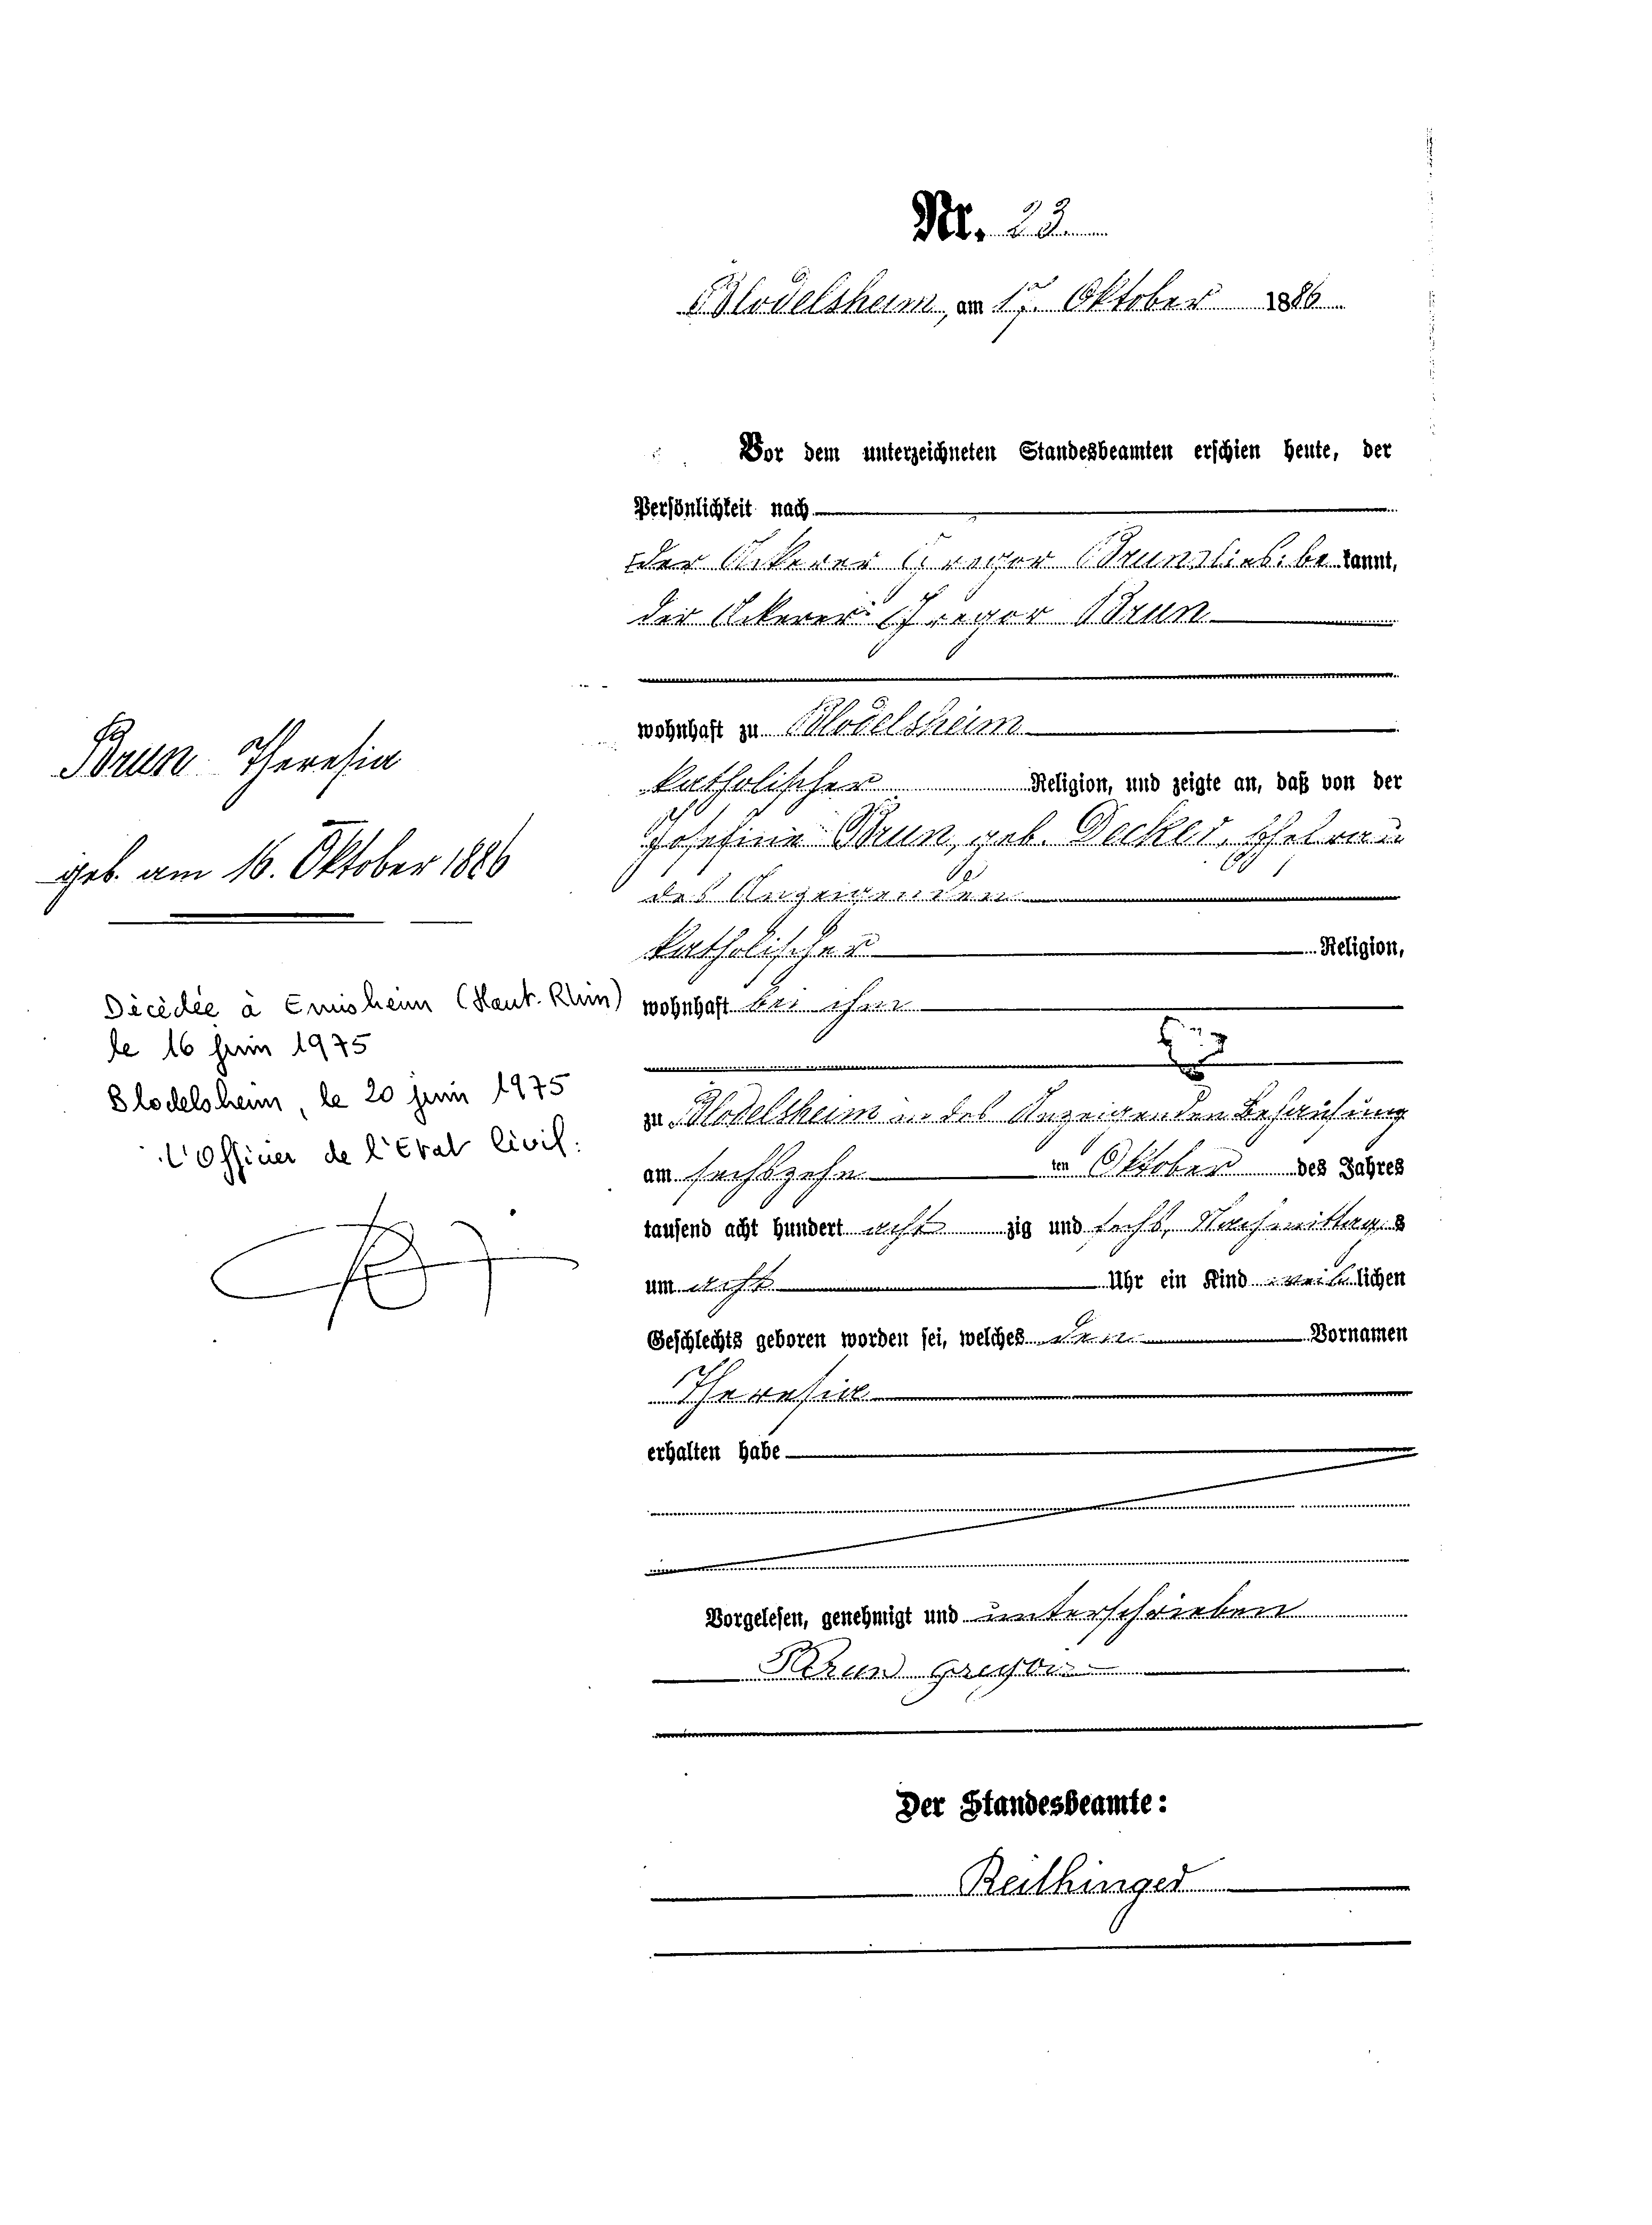 Nr. 23.
Blodelsheim, am 17. Oktober 1886
Vor dem unterzeichneten Standesbeamten erschien heute, der
Persönlichkeit nach
der Ackerer Gregor Brun be kannt,
der Ackerer Gregor Brun
wohnhaft zu Blodelsheim
katholischer Religion, und zeigte an, daß von der
Josefine Brun, geb. Decker, Ehefrau
des Anzeigenden
katholischer Religion,
wohnhaft bei ihm
zu Blodelsheim in des Anzeigenden Behausung
am sechszehn ten Oktober des Jahres
tausend acht hundert acht zig und sechs, Nachmittag s
um acht Uhr ein Kind weib lichen
Geschlechts geboren worden sei, welches den Vornamen
Theresia
erhalten habe
Vorgelesen, genehmigt und unterschrieben
Brun Gregor
Der Standesbeamte:
Reithinger
Brun Theresia
geb. am 16. Oktober 1886
Décédée à Ensisheim (Haut-Rhin)
le 16 juin 1975
Blodelsheim, le 20 juin 1975
L'Officier de l'Etat Civil: